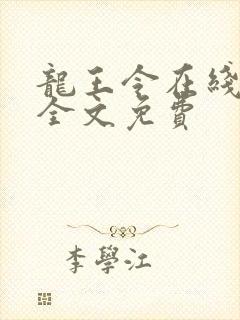 龍王令在綫
全文免費
李學江